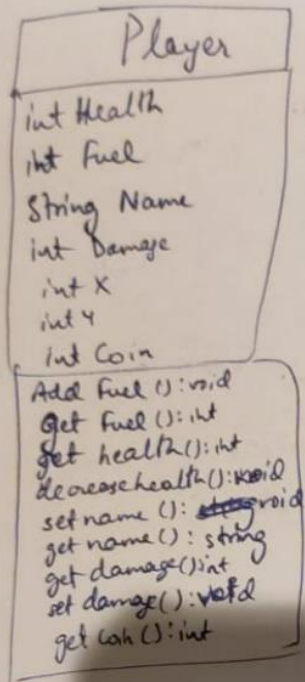 Player
int Health
int Fuel
String Name
int Damage
int X
int Y
int Coin
Add Fuel (): void
get Fuel (): int
get health(): int
decreasehealth(): void
setname (): void
get name(): string
get damage() int
set damage(): void
get coin (): int